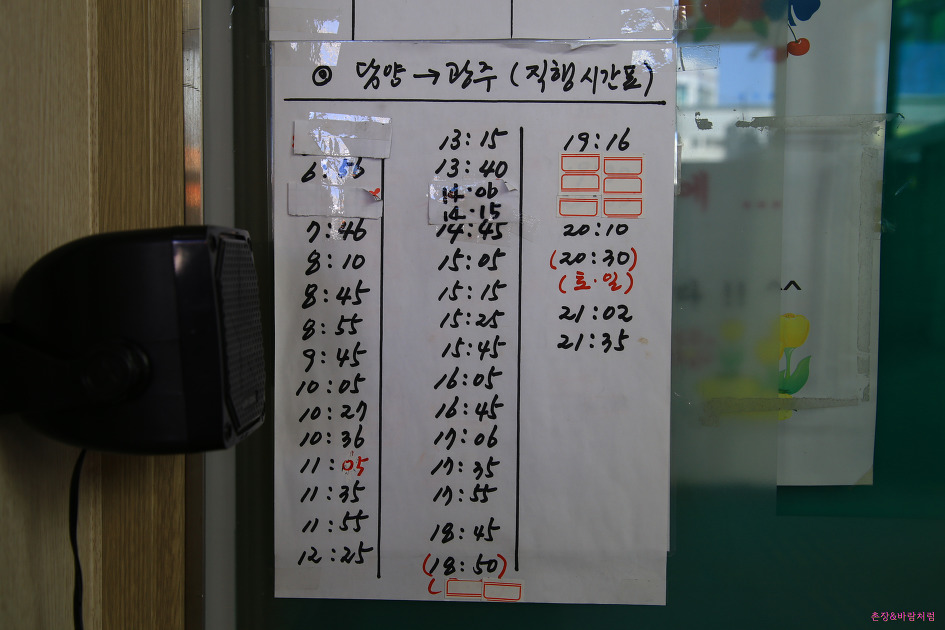 ⊙ 담양→광주 (직행시간표)
6:56
7:46
8:10
8:45
8:55
9:45
10:05
10:27
10:36
11:05
11:35
11:55
12:25
13:15
13:40
14:06
14:15
14:45
15:05
15:15
15:25
15:45
16:05
16:45
17:06
17:35
17:55
18:45
(18:50)
(
19:16
20:10
(20:30)
(토·일)
21:02
21:35
촌장&바람처럼